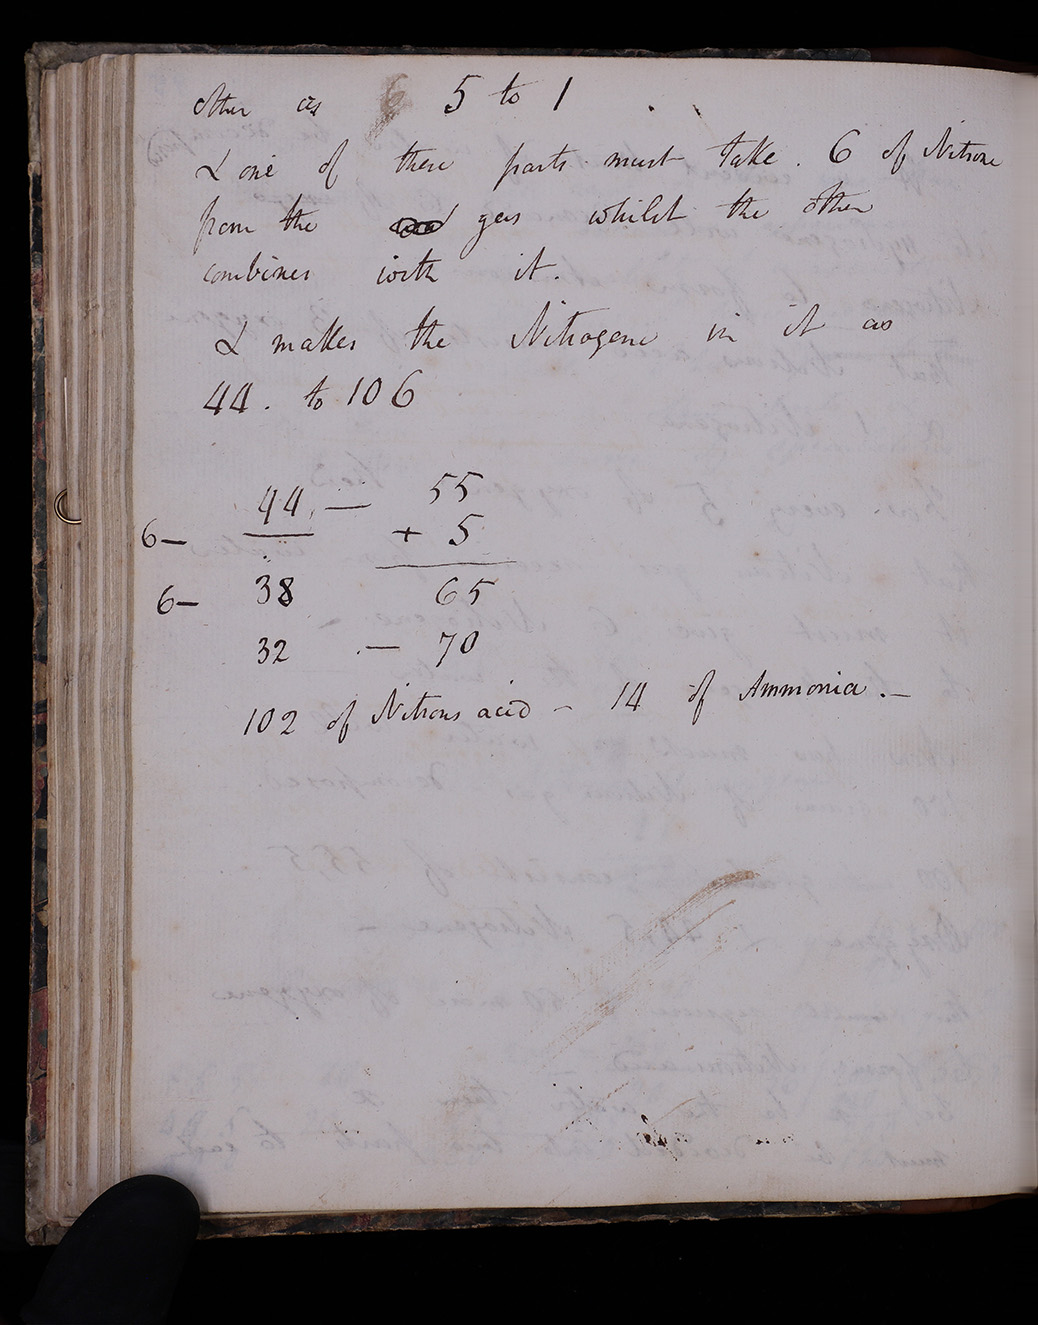 other as 5 to 1
& one of these parts must take . 6 of Nitrone
from the gas whilst the other
combines with it.
& makes the Nitrogene in it as
44 . to 106
44 — 55
6— + 5
38 65
6—
32 — 70
102 of Nitrous acid – 14 of Ammonia. –